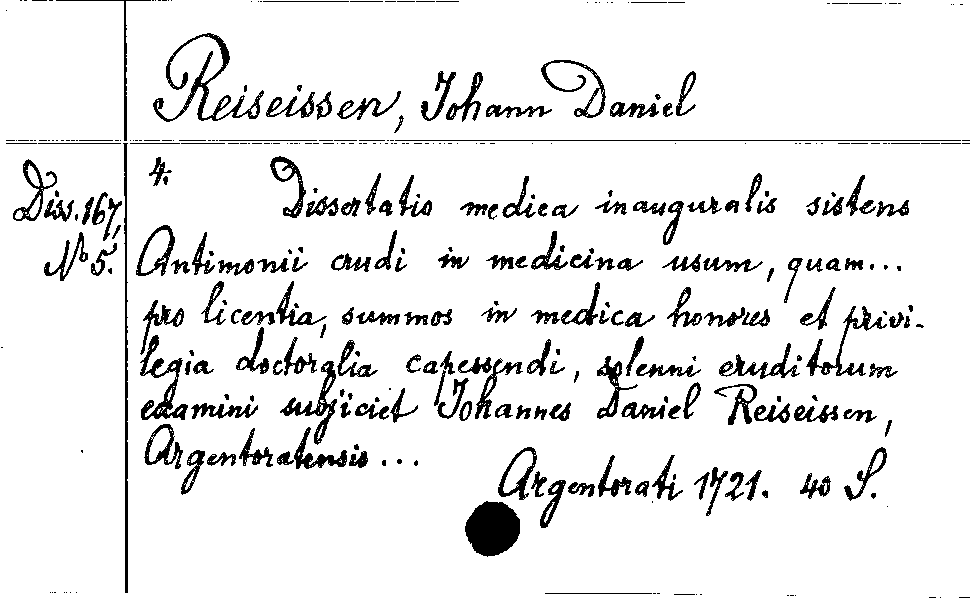 Reiseissen, Johann Daniel
Diss. 167,
No 5.
4.
Dissertatio medica inauguralis sistens
Antimonii crudi in medicina usum, quam...
pro licentia, summos in medica honores et privi-
legia doctoralia capessendi, solenni eruditorum
examini subjiciet Johannes Daniel Reiseissen,
Argentoratensis...
Argentorati 1721. 40 S.